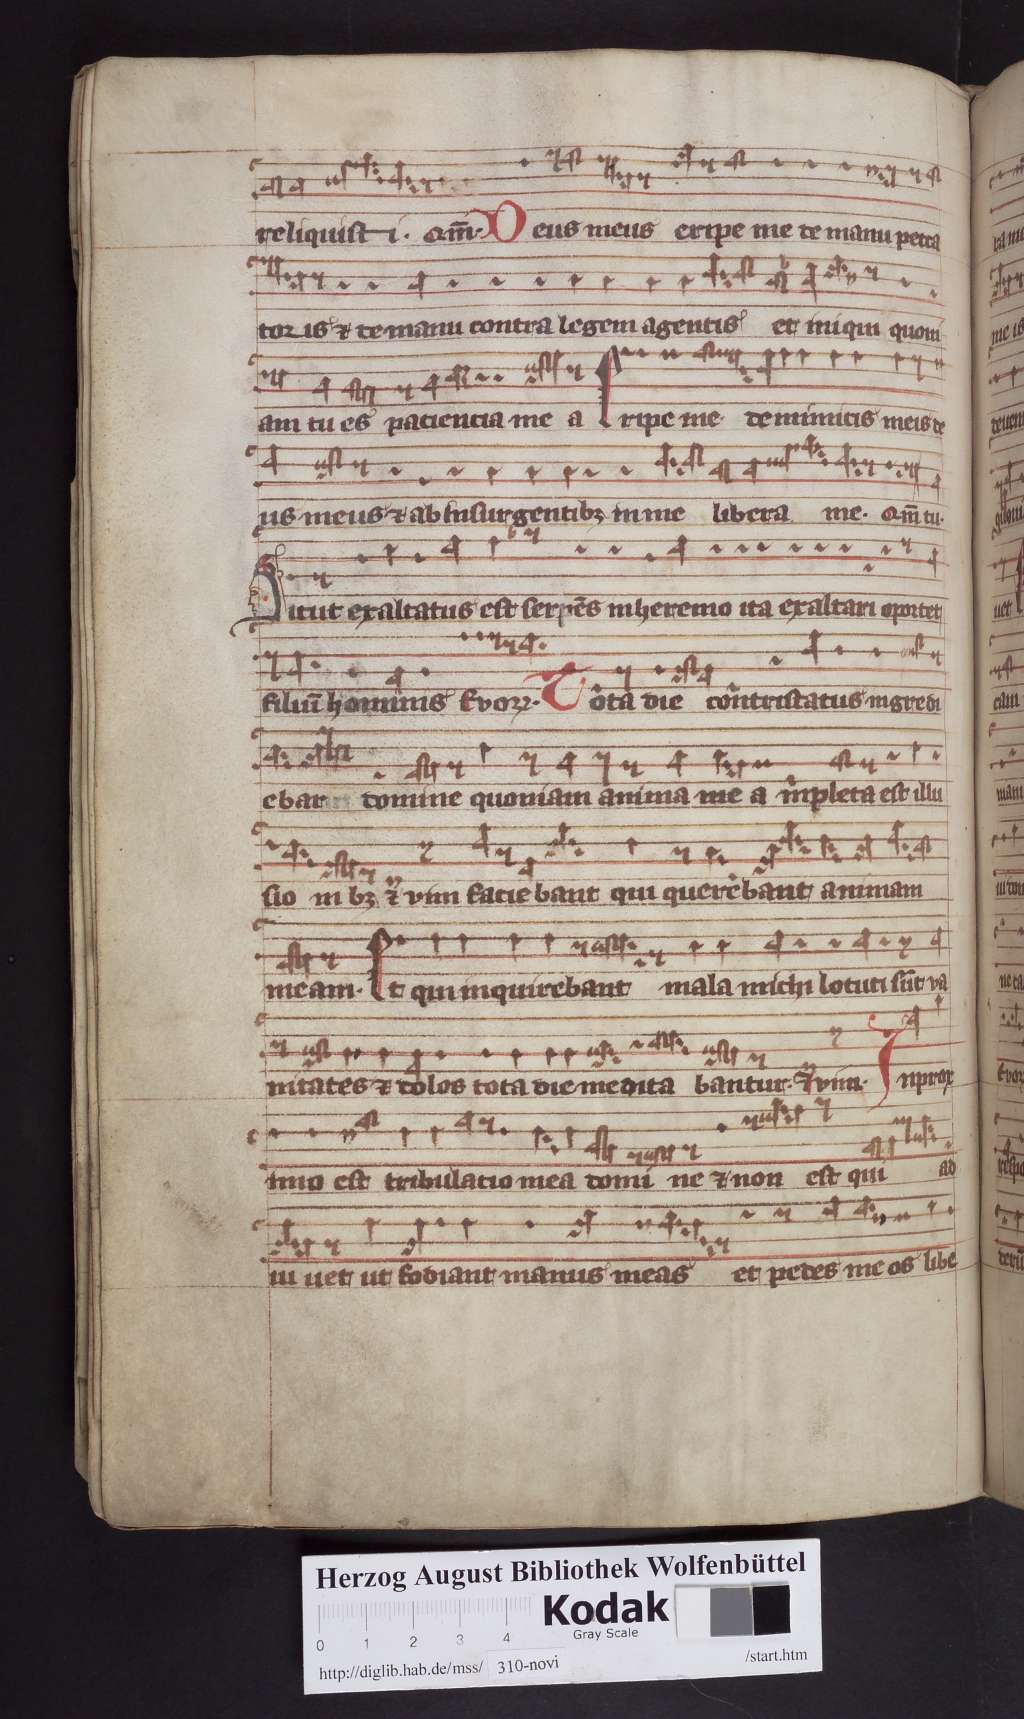 reliquisti. Qm̄. Deus meus eripe me de manu pecca
toris ⁊ de manu contra legem agentis et iniqui quoni
am tu es paciencia me a Eripe me de inimicis meis de
us meus ⁊ ab insurgentibꝫ in me libera me. Qm̄ tu.
Sicut exaltatus est serpēs in heremo ita exaltari oportet
filiū hominis Evoꝝ. Tota die contristatus ingredi
ebar domine quoniam anima me a inpleta est illu
sio nibꝫ ⁊ vim facie bant qui querebant animam
meam. Et qui inquirebant mala michi locuti sūt va
nitates ⁊ dolos tota die medita bantur. ⁊ vim. In prox
imo est tribulacio mea domi ne ⁊ non est qui ad
iu vet ut fodiant manus meas et pedes me os libe
Herzog August Bibliothek Wolfenbüttel
Kodak
Gray Scale
0 1 2 3 4
http://diglib.hab.de/mss/ 310-novi /start.htm